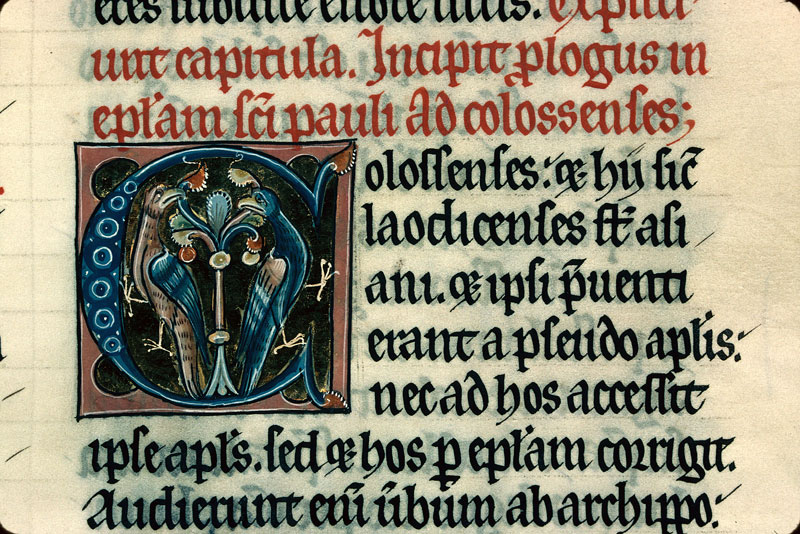 unt capitula. Incipit plogus in
epl̃am sc̃i pauli Ad colossenses;
Colossenses: & hij sic̃
laodicenses st̃ asi
ani. & ipsi p̃uenti
erant a pseudo apl̃is:
nec ad hos accessit
ipse apl̃s. sed & hos ꝑ epl̃am corrigit.
Audierunt eni̅ ũbum ab archippo: